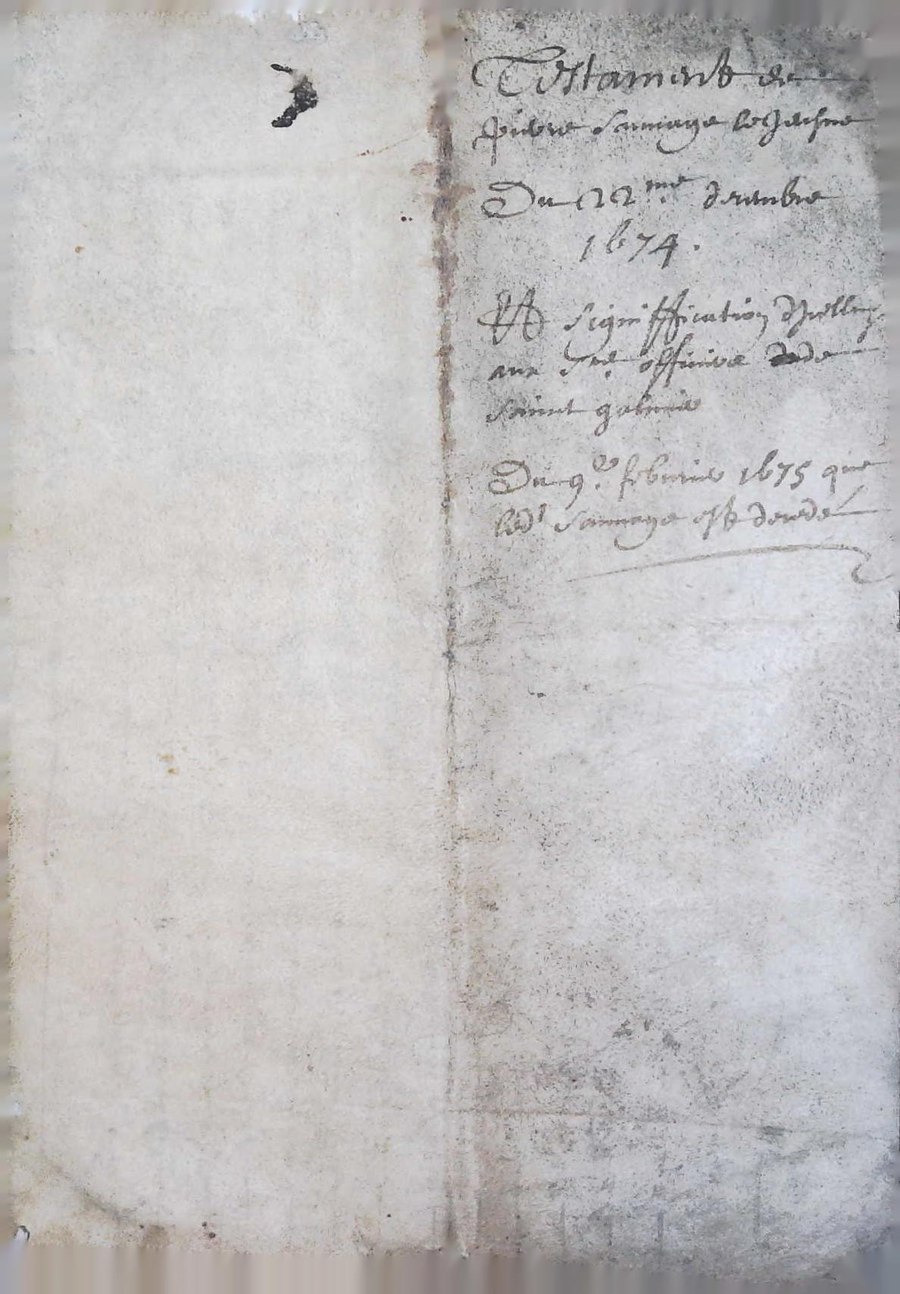 Testament de
pierre Sauvage le Jeusne
Du 22me decembre
1674.
Et signiffication d'icelluy
aux Srs officiers de
Saint gabriel
Du 9e febvrier 1675 que
led. Sauvage est decedé